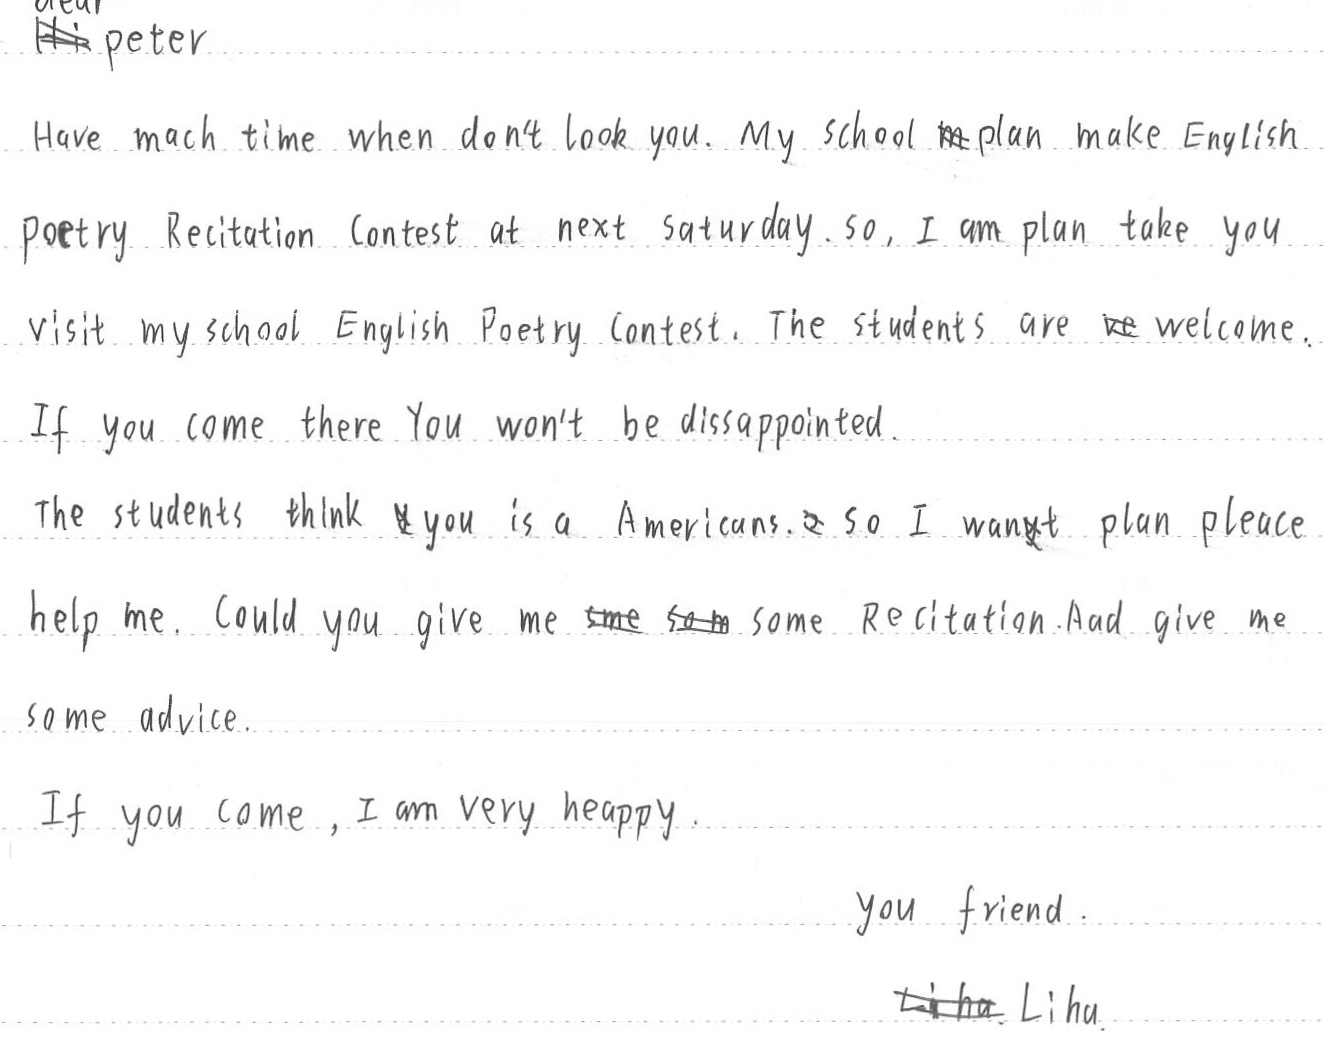 dear
peter
Have mach time when don't look you. My school plan make English
Poetry Recitation Contest at next saturday. so, I am plan take you
visit my school English Poetry Contest. The students are welcome.
If you come there You won't be dissappointed.
The students think you is a Americans. so I want plan pleace
help me. Could you give me some Recitation. Aad give me
some advice.
If you come, I am very heappy.
you friend.
Lihu.